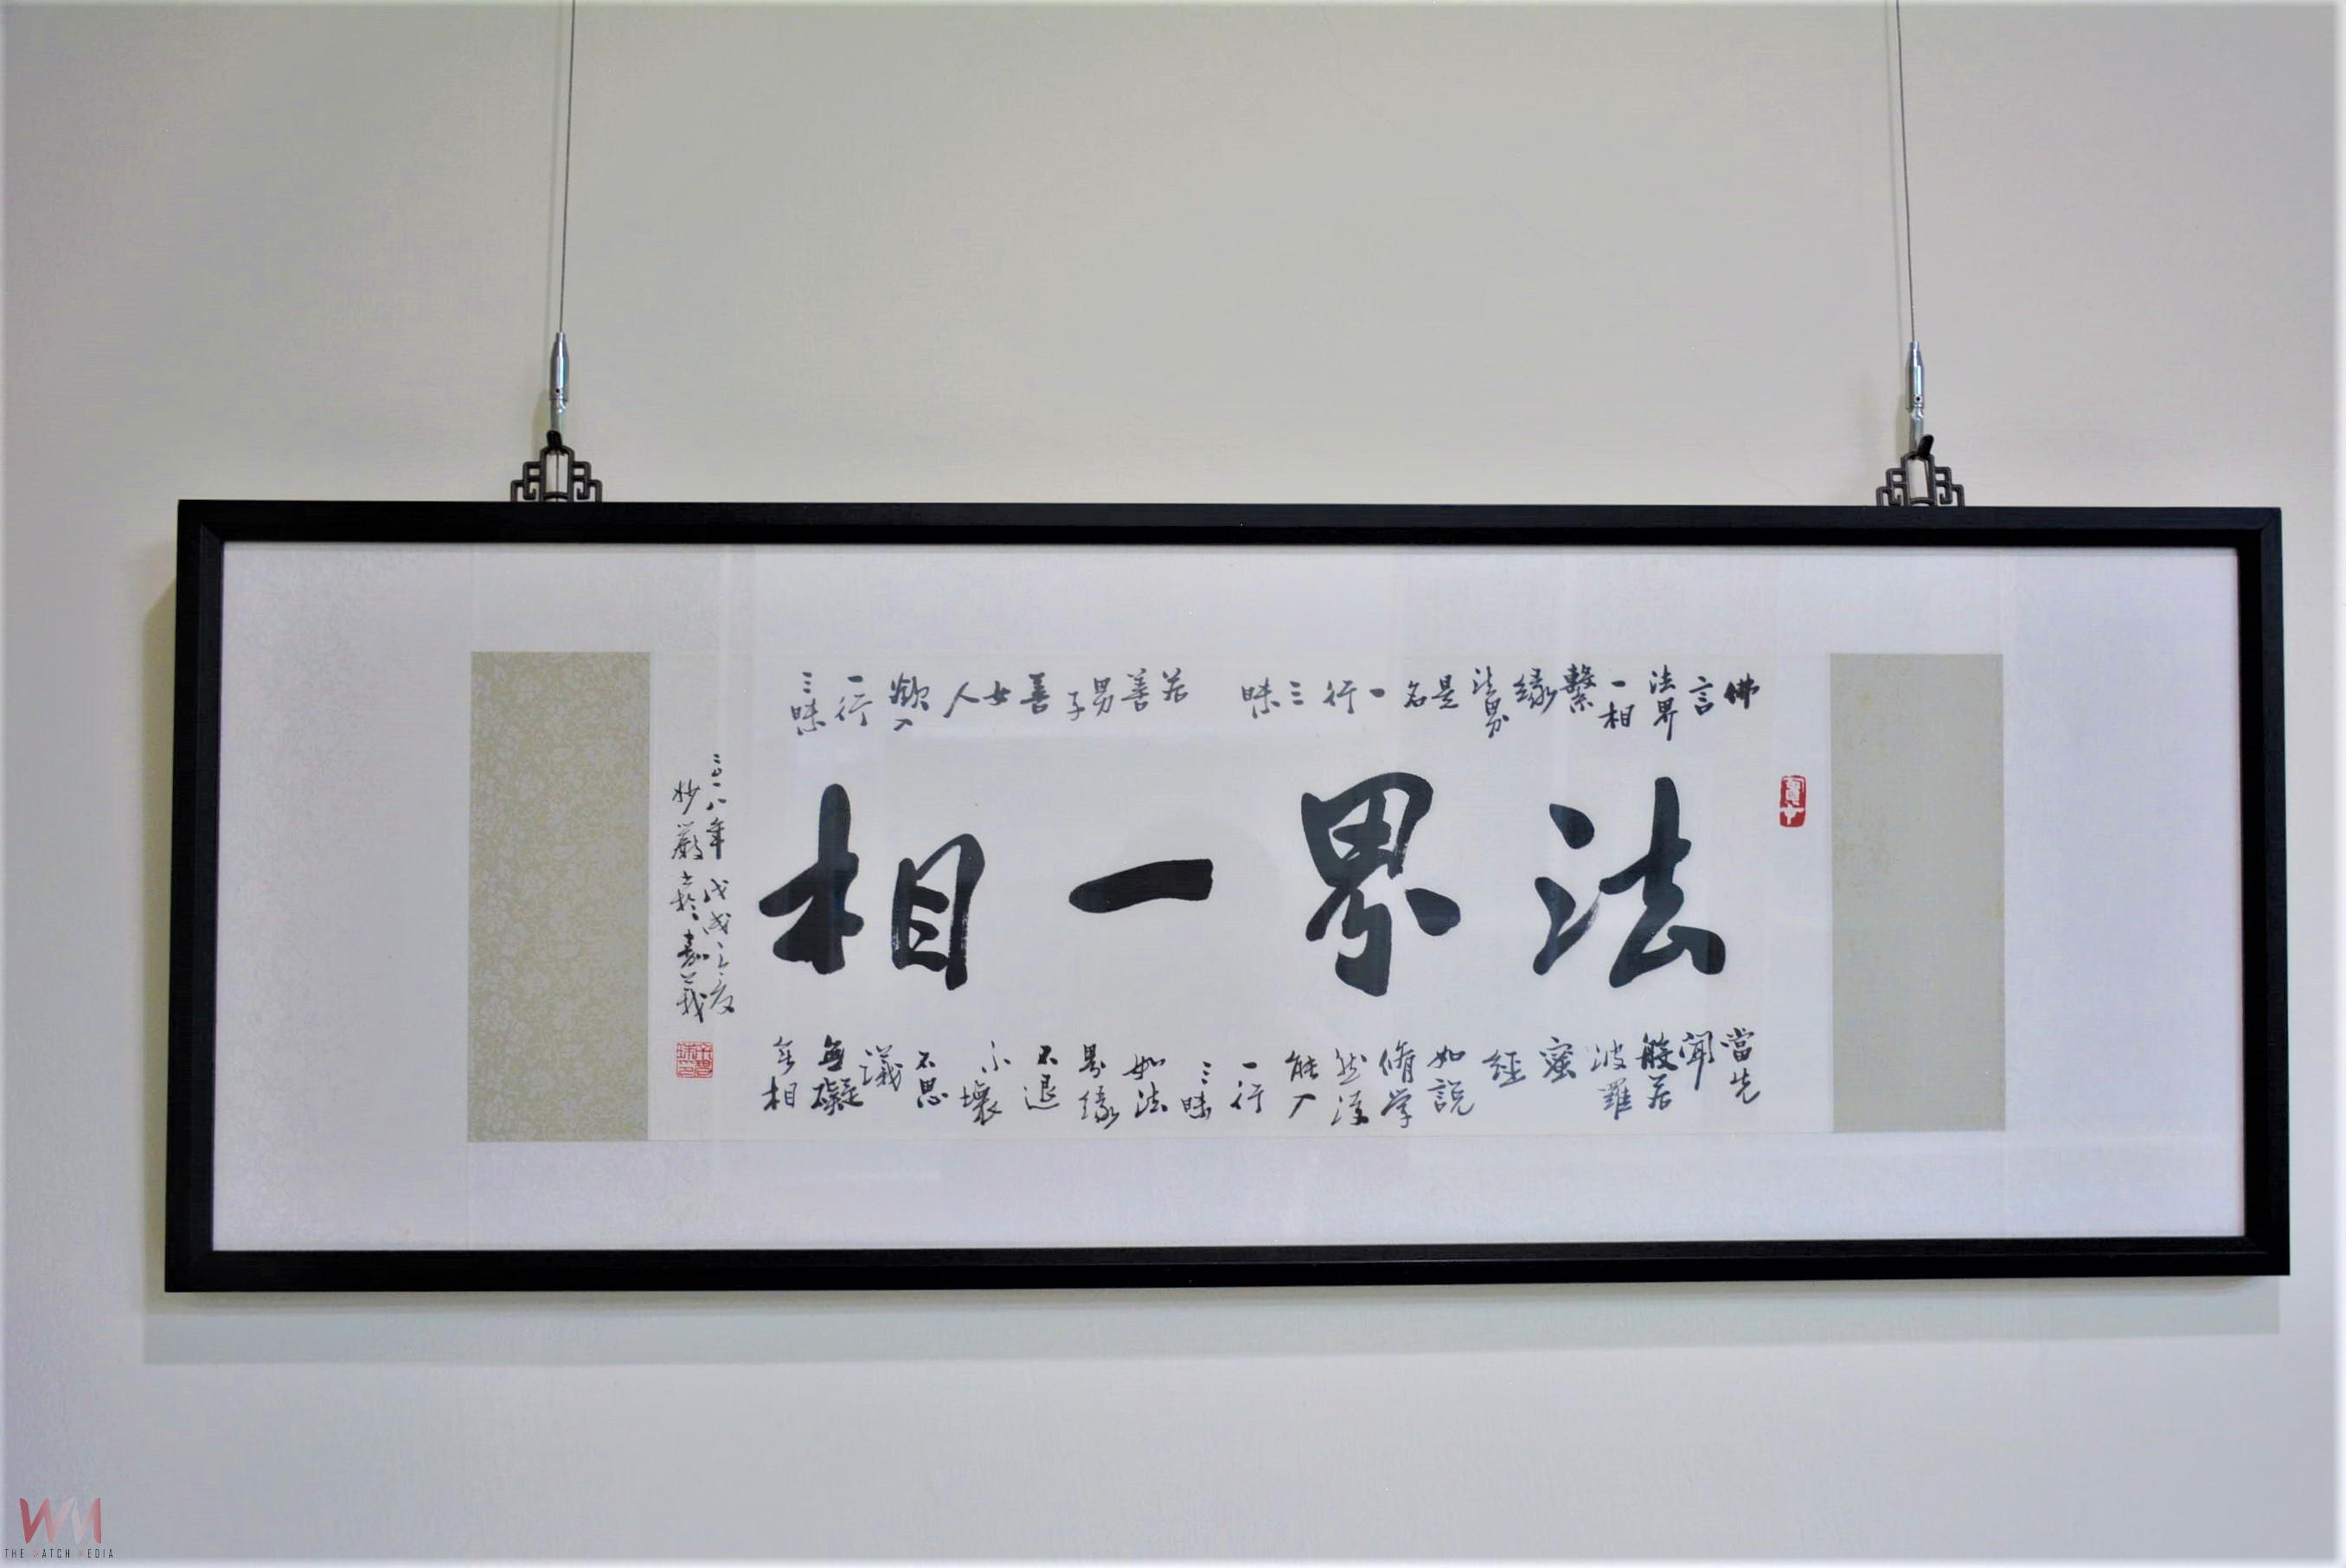 佛言法界一相繫緣法界是名一行三昧 若善男子善女人欲入一行三昧
法界一相
當先聞般若波羅蜜經如說脩學然後能入一行三昧如法界緣不退不壞不思議無礙無相
二〇一八年戊戌立夏
妙嚴書於嘉義
THE WATCH MEDIA